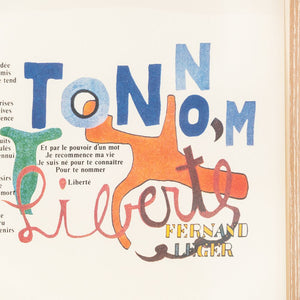 dée
mis
e tend
TON NOM
rises
ives
ence
uits
ulés
ennui
Et par le pouvoir d'un mot
Je recommence ma vie
Je suis né pour te connaître
Pour te nommer
Liberté
sirs
e
mort
Liberté
FERNAND
LEGER
ru
enirs